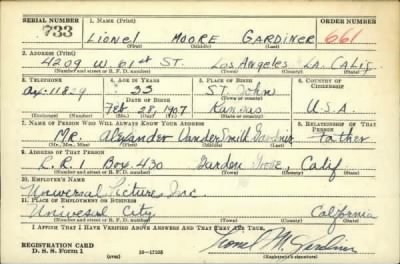 SERIAL NUMBER 1. NAME (Print) ORDER NUMBER
733 Lionel MOORE GARDINER 661
(First) (Middle) (Last)
2. ADDRESS (Print)
4209 W. 61st ST. Los Angeles LA. Calif.
(Number and street or R. F. D. number) (Town) (County) (State)
3. TELEPHONE 4. AGE IN YEARS 5. PLACE OF BIRTH 6. COUNTRY OF CITIZENSHIP
Ax. 11829 33 ST. John
DATE OF BIRTH (Town or county)
Feb. 28, 1907 Kansas U.S.A.
(Exchange) (Number) (Mo.) (Day) (Yr.) (State or country)
7. NAME OF PERSON WHO WILL ALWAYS KNOW YOUR ADDRESS 8. RELATIONSHIP OF THAT PERSON
MR. Alexander VanderSmill Gardiner Father
(Mr., Mrs., Miss) (First) (Middle) (Last)
9. ADDRESS OF THAT PERSON
R.R. 1 Box 430 Garden Grove, Calif
(Number and street or R. F. D. number) (Town) (County) (State)
10. EMPLOYER'S NAME
Universal Picture Inc
11. PLACE OF EMPLOYMENT OR BUSINESS
Universal City California
(Number and street or R. F. D. number) (Town) (County) (State)
I AFFIRM THAT I HAVE VERIFIED ABOVE ANSWERS AND THAT THEY ARE TRUE.
REGISTRATION CARD
D. S. S. Form 1 (over) 16—17105 Lionel M. Gardiner
(Registrant's signature)